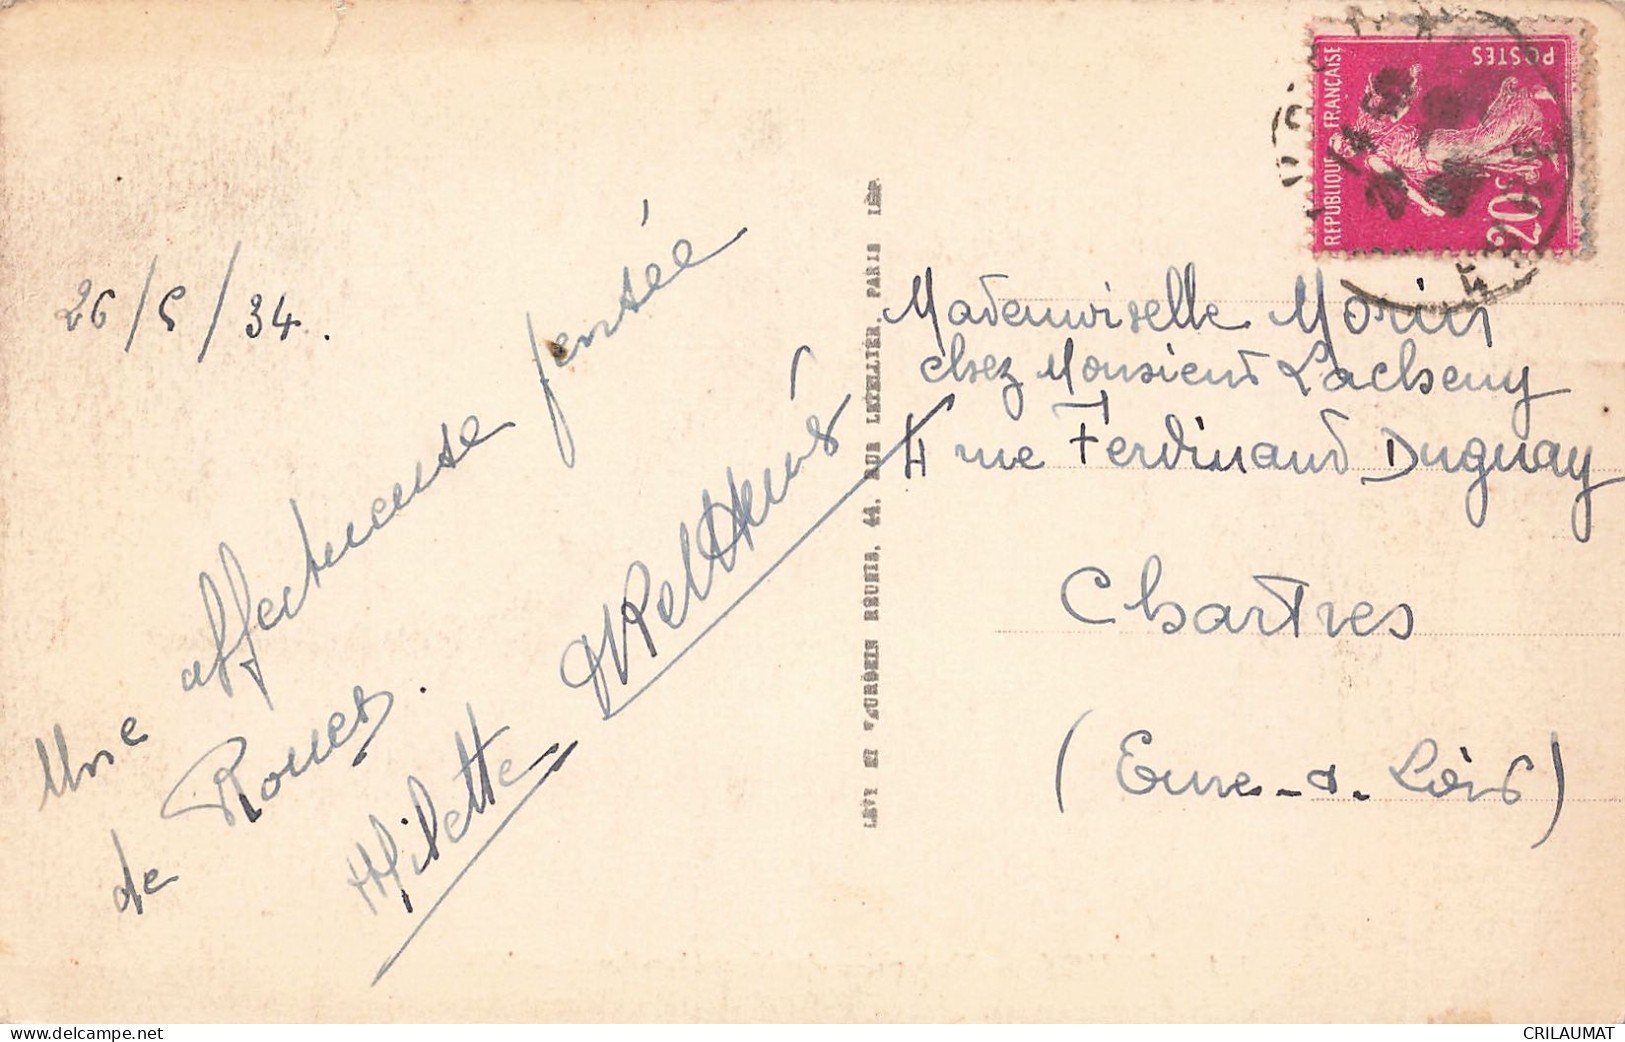 26/5/34.
Une affectueuse pensée
de Rouen.
Milette
Mademoiselle Morin
chez Monsieur Lacheny
4 rue Ferdinand Duguay
Chartres
(Eure-&-Loir)
LÉVY ET NEURDEIN RÉUNIS, 44, RUE LETELLIER, PARIS IMP.
RÉPUBLIQUE FRANÇAISE
POSTES
20c
www.delcampe.net
CRILAUMAT